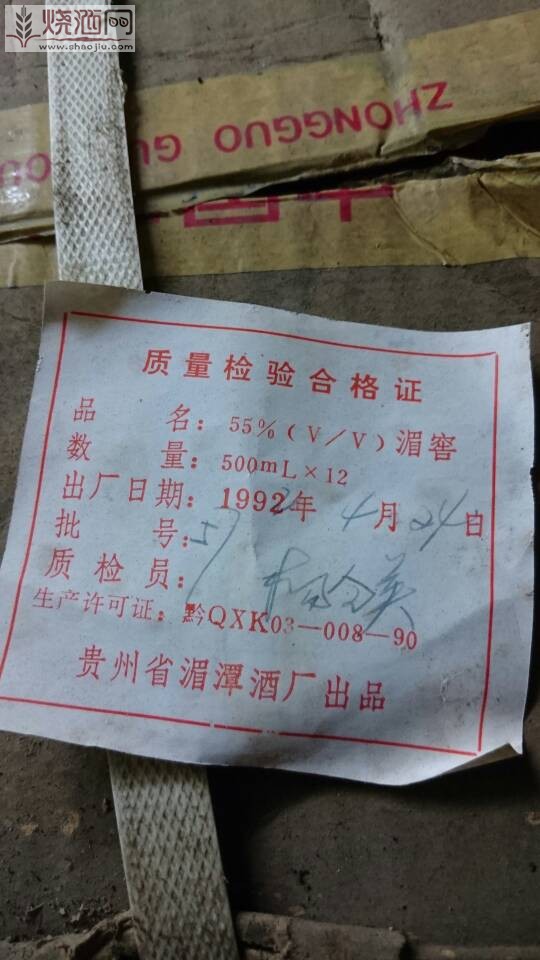 烧酒网
www.shaojiu.com
ZHONGGUO GU
质量检验合格证
品 名：55%（V/V）湄窖
数 量：500mL×12
出厂日期：1992年 4月24日
批 号：57
质检员：
生产许可证：黔QXK03—008—90
贵州省湄潭酒厂出品